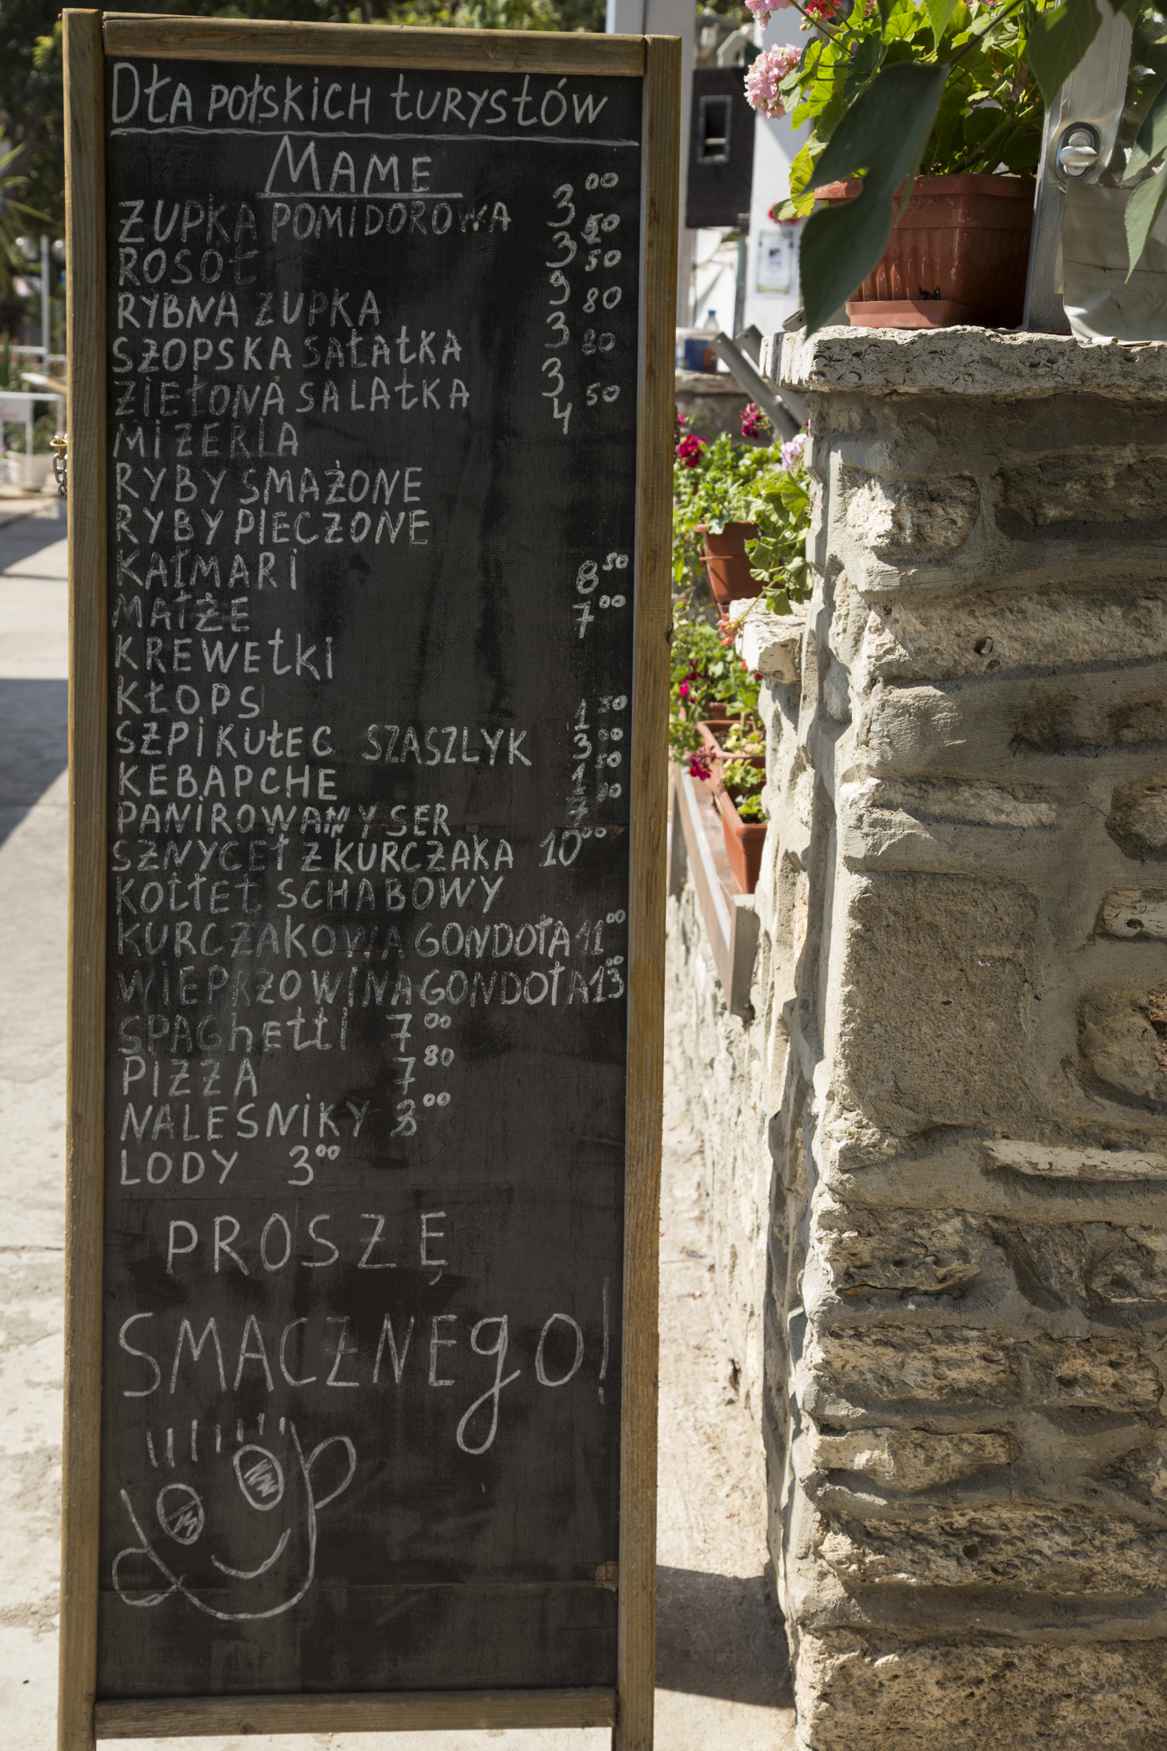 DŁA POŁSKICH TURYSTÓW
MAME
ZUPKA POMIDOROWA 3 00
ROSOŁ 3 50
RYBNA ZUPKA 9 50
SZOPSKA SAŁATKA 3 80
ZIEŁONA SALATKA 3 80
MIZERIA 4 50
RYBY SMAŻONE
RYBY PIECZONE
KAŁMARI 8 50
MAŁŻE 7 00
KREWETKI
KŁOPS 1 50
SZPIKUŁEC SZASZLYK 3 00
KEBAPCHE 1 50
PANIROWANY SER 7
SZNYCEŁ Z KURCZAKA 10 00
KOTŁET SCHABOWY
KURCZAKOWA GONDOŁA 11 00
WIEPRZOWINA GONDOŁA 13 00
SPAGHETTI 7 00
PIZZA 7 80
NALESNIKY 3 00
LODY 3 00
PROSZĘ
SMACZNEGO!